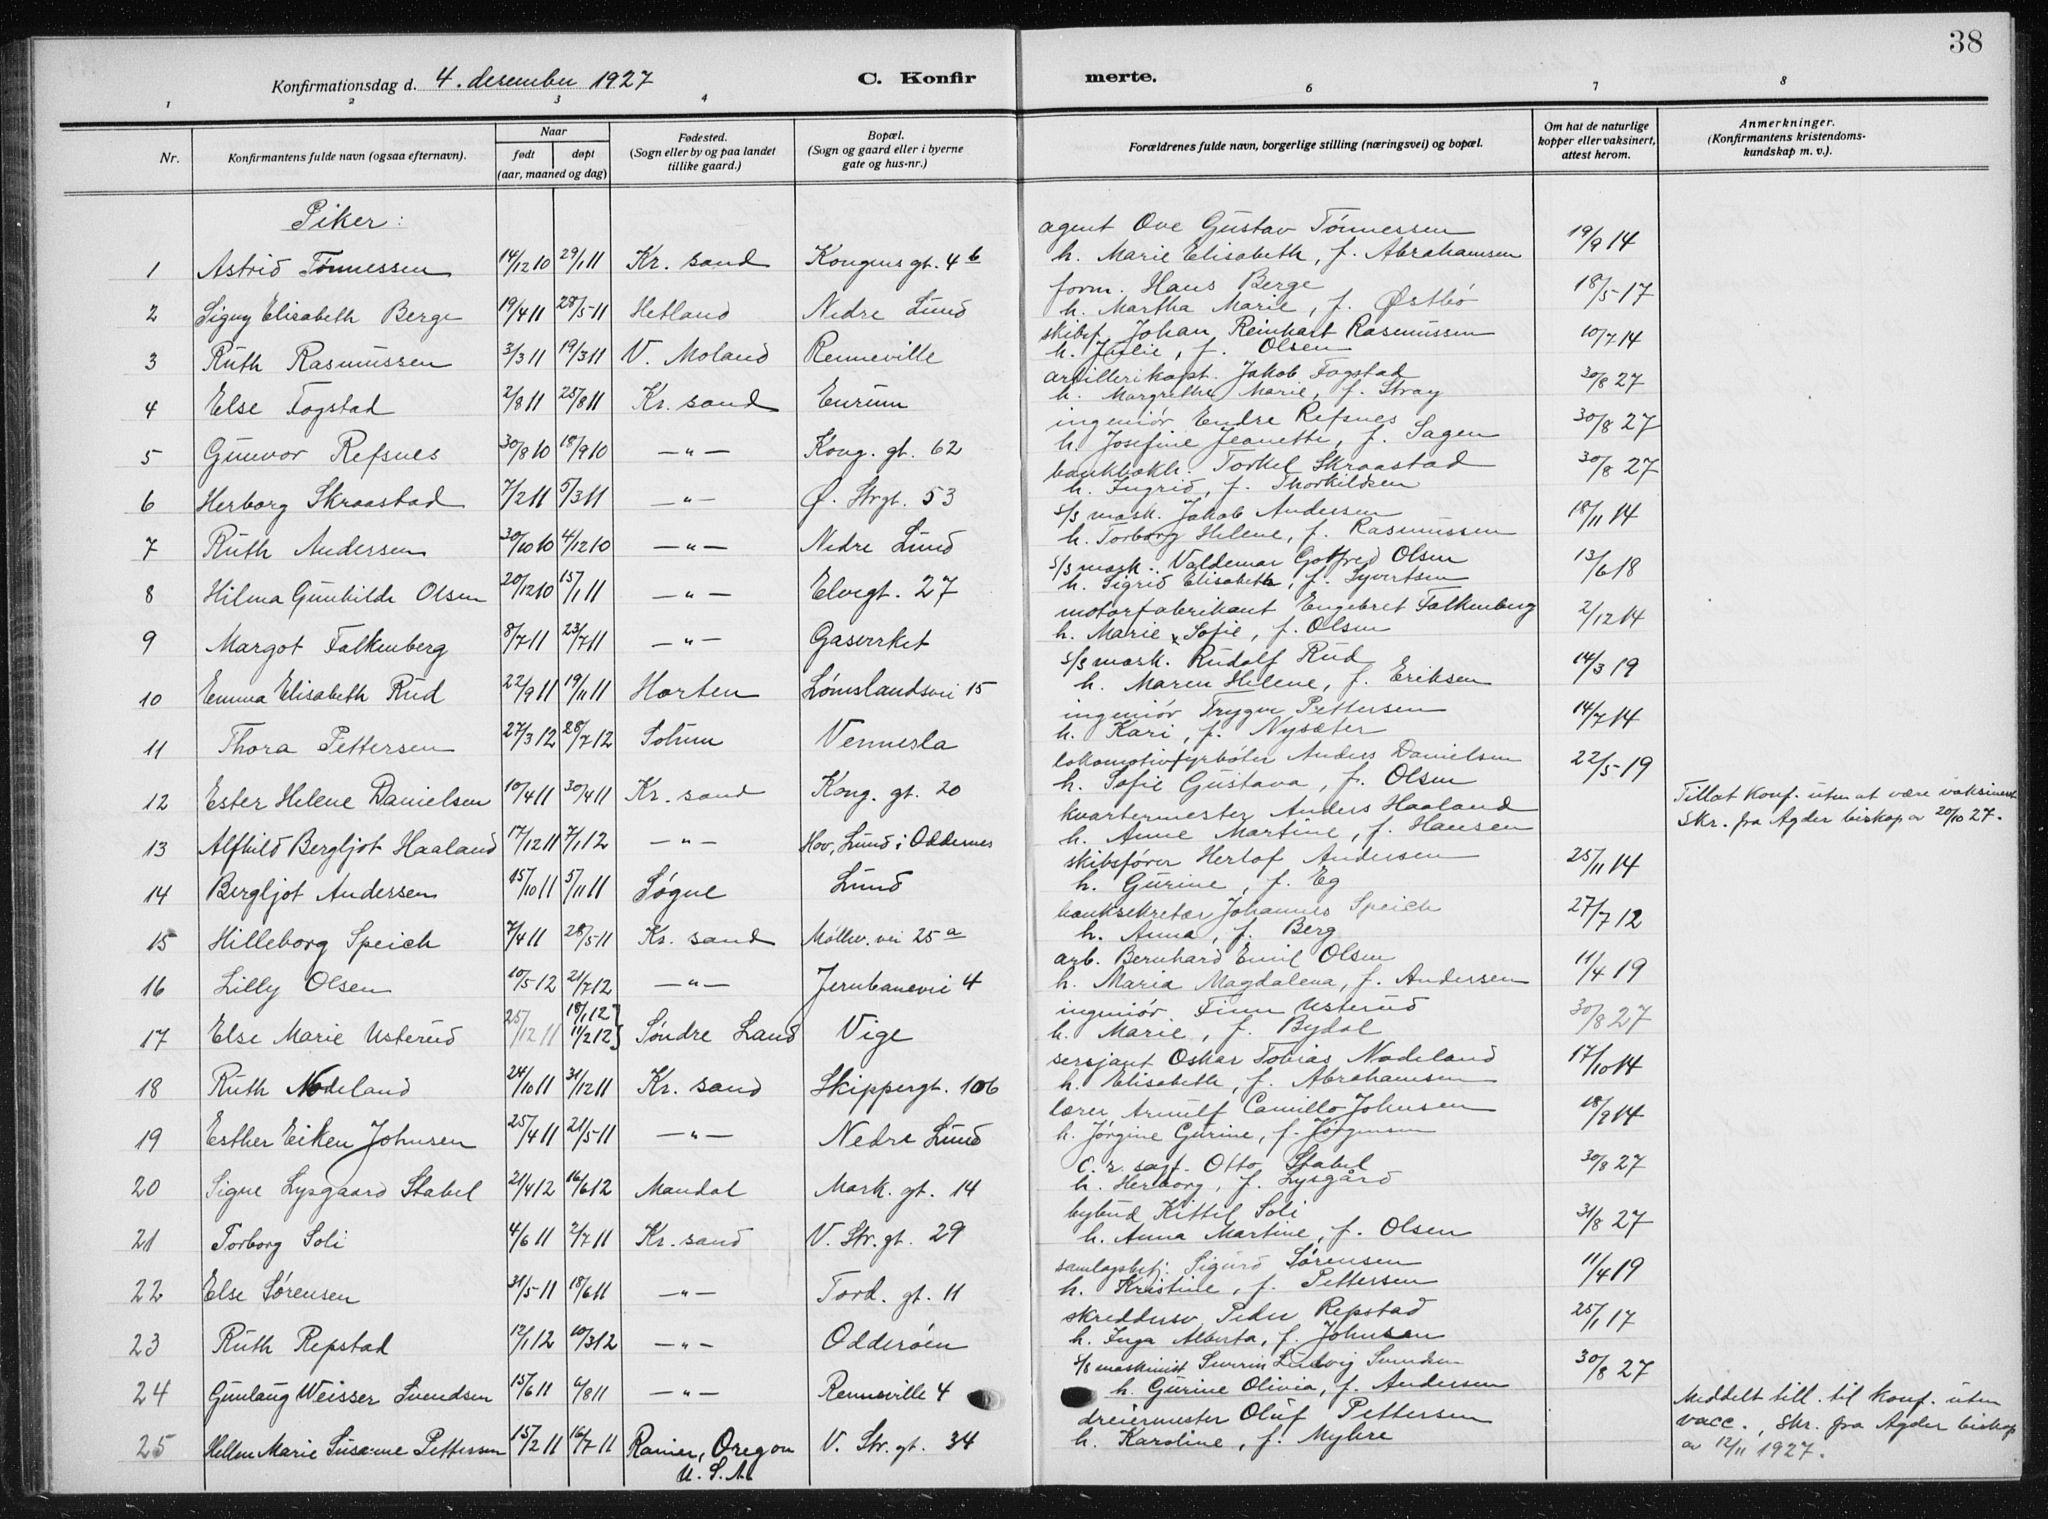 38
Konfirmationsdag d. 4. desember 1927 C. Konfirmerte.
1 2 3 4 6 7 8
Nr. Konfirmantens fulde navn (ogsaa efternavn). Naar født døpt (aar, maaned og dag) Fødested. (Sogn eller by og paa landet tillike gaard.) Bopæl. (Sogn og gaard eller i byerne gate og hus-nr.) Forældrenes fulde navn, borgerlige stilling (næringsvei) og bopæl. Om hat de naturlige kopper eller vaksinert, attest herom. Anmerkninger. (Konfirmantens kristendoms-kundskap m. v.).
Piker:
1 Astrid Tønnessen 14/12 10 29/1 11 Kr. sand Kongens gt. 4 b agent Ove Gustav Tønnessen h. Marie Elisabeth, f. Abrahamsen 19/9 14
2 Signy Elisabeth Berge 19/4 11 28/5 11 Hetland Nedre Lund form. Hans Berge h. Martha Marie, f. Østbø 18/5 17
3 Ruth Rasmussen 3/3 11 19/3 11 V. Moland Renneville skibsf. Johan Reinhart Rasmussen h. Julie, f. Olsen 10/7 14
4 Else Fogstad 2/8 11 25/8 11 Kr. sand Eurum artillerikapt. Jakob Fogstad h. Margrethe Marie, f. Stray 30/8 27
5 Gunvor Refsnes 30/8 10 18/9 10 —"— Kong. gt. 62 ingeniør Endre Refsnes h. Josefine Jeanette, f. Sagen 30/8 27
6 Herborg Skraastad 7/2 11 5/3 11 —"— Ø. Strgt. 53 bankbokh. Torkel Skraastad h. Ingrid, f. Thorkildsen 30/8 27
7 Ruth Andersen 30/10 10 4/12 10 —"— Nedre Lund s/s mask. Jakob Andersen h. Torborg Helene, f. Rasmussen 18/11 14
8 Hilma Gunhilde Olsen 20/12 10 15/1 11 —"— Elvegt. 27 s/s mask. Valdemar Gotfred Olsen h. Sigrid Elisabeth, f. Syvertsen 13/6 18
9 Margot Falkenberg 8/7 11 23/7 11 —"— Gasverket motorfabrikant Engebret Falkenberg h. Marie Sofie, f. Olsen 2/12 14
10 Emma Elisabeth Rud 22/9 11 19/11 11 Horten Lømslandsvei 15 s/s mask. Rudolf Rud h. Maren Helene, f. Eriksen 14/3 19
11 Thora Pettersen 27/3 12 28/7 12 Solum Vennesla ingeniør Trygve Pettersen h. Kari, f. Nysæter 14/7 14
12 Ester Helene Danielsen 10/4 11 30/4 11 Kr. sand Kong. gt. 20 lokomotivfyrbøter Anders Danielsen h. Sofie Gustava, f. Olsen 22/5 19
13 Alfhild Bergljot Haaland 17/12 11 7/1 12 —"— Hov, Lund i Oddernes kvartermester Anders Haaland h. Anne Martine, f. Hansen Tillat konf. uten at være vaksinert Skr. fra Agder biskop av 20/10 27.
14 Bergljot Andersen 15/10 11 5/11 11 Søgne Lund skibsfører Herlof Andersen h. Gurine, f. Eg 25/11 14
15 Hilleborg Speich 7/4 11 28/5 11 Kr. sand Møllev. vei 25 a banksekretær Johannes Speich h. Anna, f. Berg 27/7 12
16 Lilly Olsen 10/5 12 21/7 12 —"— Jernbanevei 4 arb. Bernhard Emil Olsen h. Maria Magdalena, f. Andersen 11/4 19
17 Else Marie Usterud 25/12 11 18/1 12 11/2 12 Søndre Land Vige ingeniør Finn Usterud h. Marie, f. Bydal 30/8 27
18 Ruth Nodeland 24/10 11 31/12 11 Kr. sand Skippergt. 106 sersjant Oskar Tobias Nodeland h. Elisabeth, f. Abrahamsen 17/10 14
19 Esther Eiken Johnsen 25/4 11 21/5 11 —"— Nedre Lund lærer Arnulf Camillo Johnsen h. Jørgine Gurine, f. Jørgensen 18/9 14
20 Signe Lysgaard Stabel 21/4 12 16/6 12 Mandal Mark. gt. 14 o. r. sagf. Otto Stabel h. Herborg, f. Lysgård 30/8 27
21 Torborg Soli 4/6 11 2/7 11 Kr. sand V. Str. gt. 29 bybud Kittil Soli h. Anna Martine, f. Olsen 31/8 27
22 Else Sørensen 31/5 11 18/6 11 —"— Tord. gt. 11 samlagsbetj. Sigurd Sørensen h. Kristine, f. Pettersen 11/4 19
23 Ruth Repstad 12/1 12 10/3 12 —"— Odderøen skreddersv. Peder Repstad h. Inga Alberta, f. Johnsen 25/1 17
24 Gunlaug Weisser Svendsen 15/6 11 6/8 11 —"— Renneville 4 s/s maskinist Severin Ludvig Svendsen h. Gurine Olivia, f. Andersen 30/8 27
25 Hellen Marie Susanne Pettersen 15/2 11 16/7 11 Rainier, Oregon U. S. A. V. Str. gt. 34 dreiermester Oluf Pettersen h. Karoline, f. Myhre Meddelt till. til konf. uten vacc., skr. fra Agder biskop av 12/11 1927.